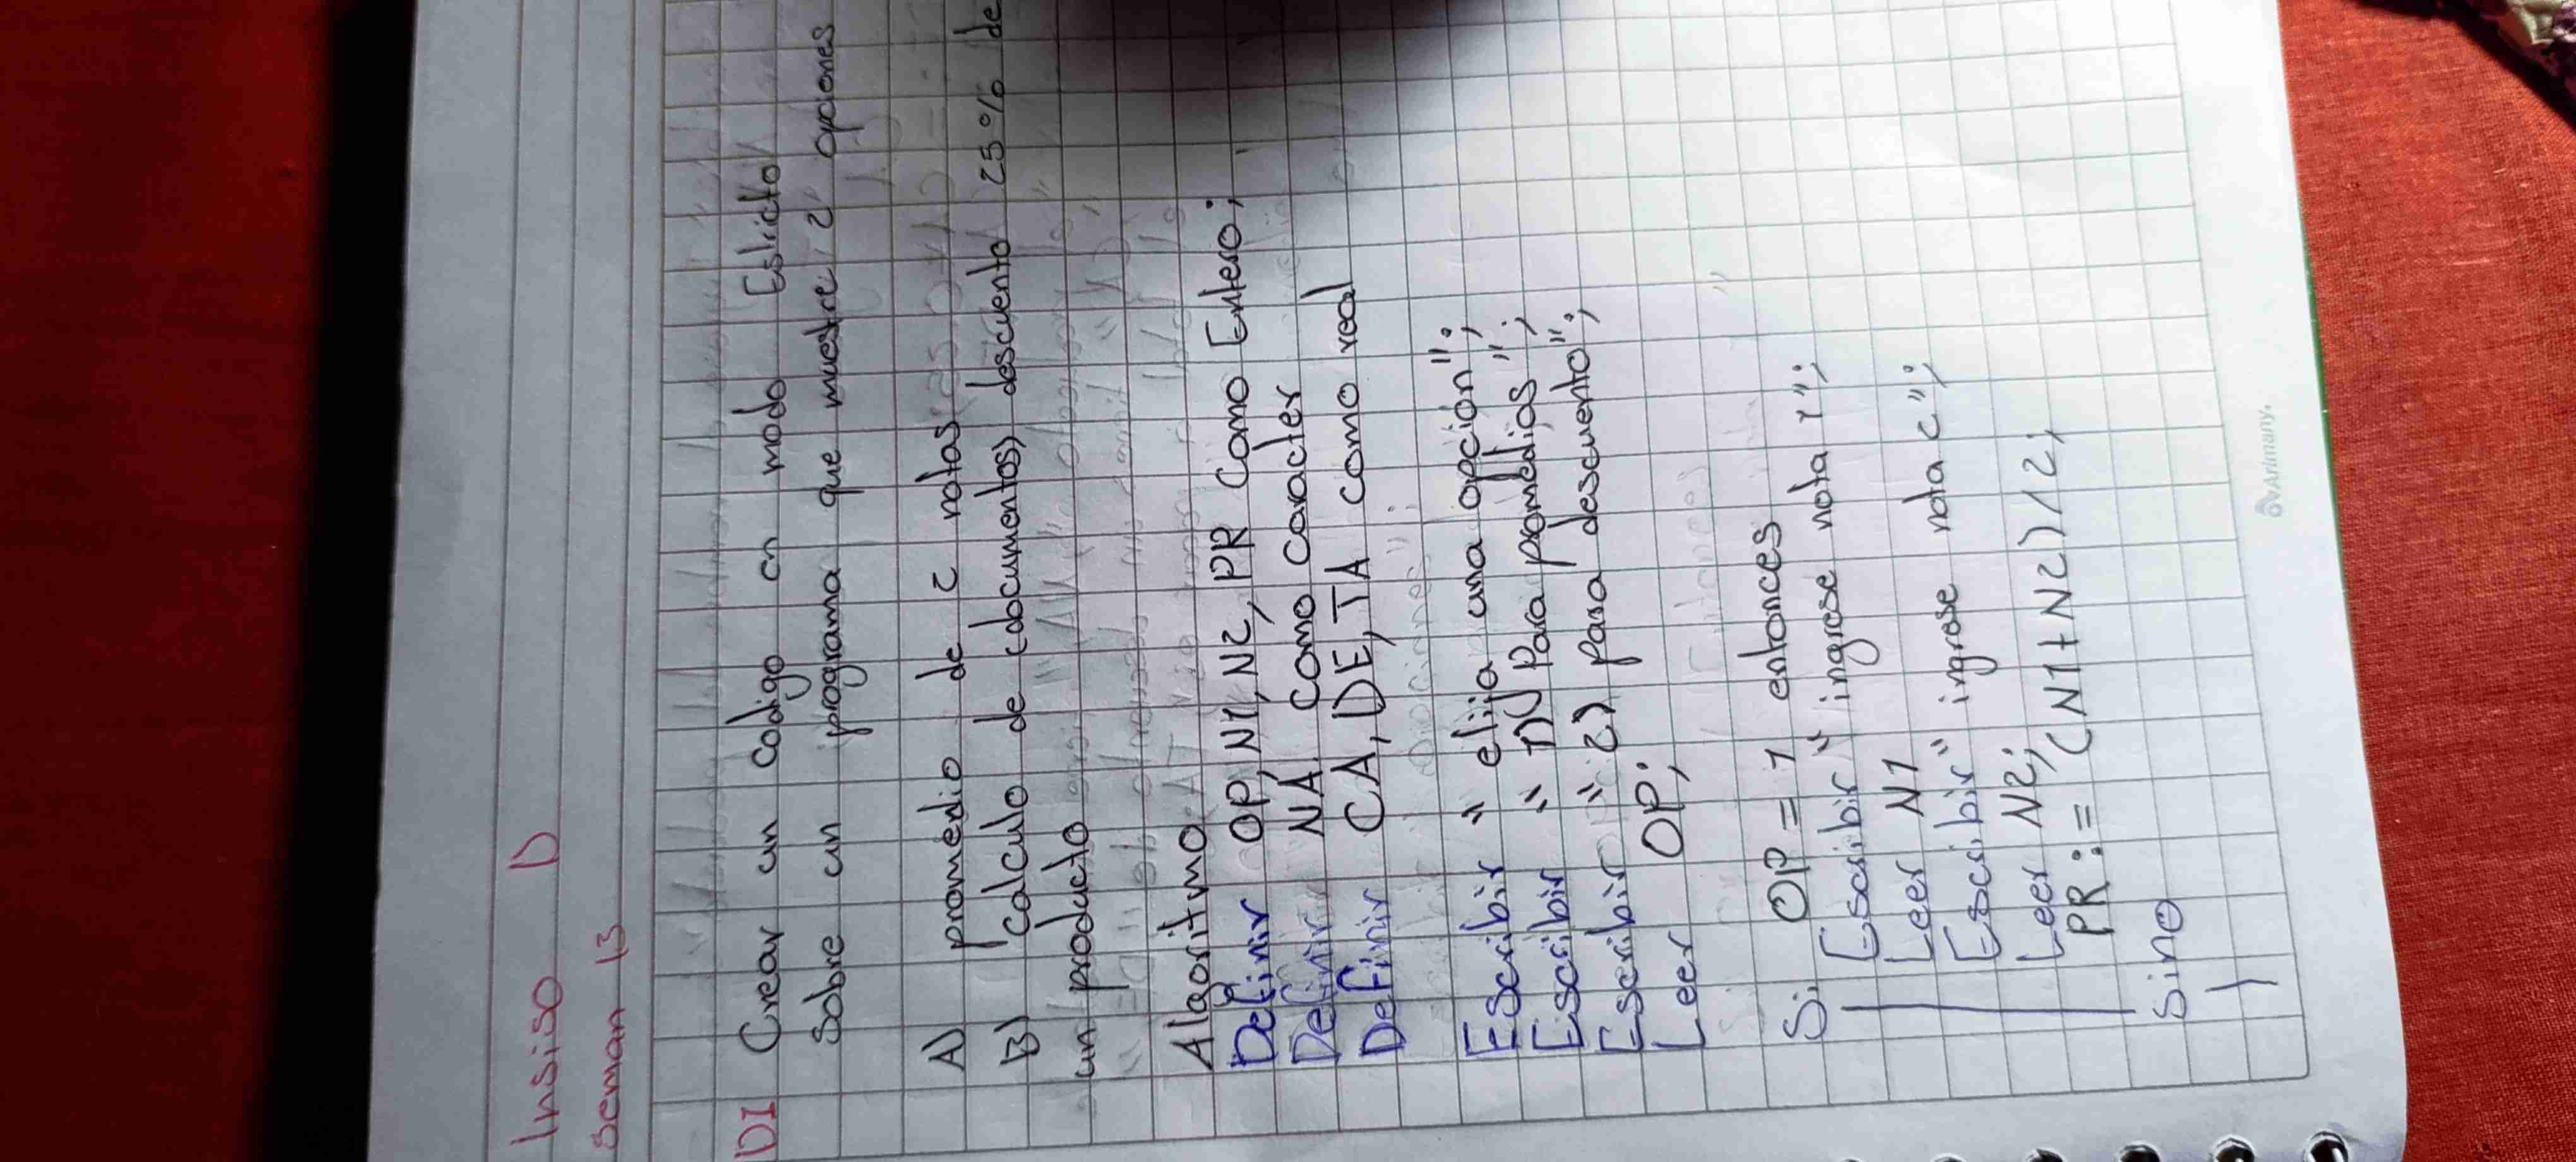 Insiso D
Seman 13
D1 Crear un codigo en modo Estricto
sobre un programa que muestre 2 opciones
A) promedio de 2 notas
B) Calculo de (documentos) descuento 25% de
un producto
Algoritmo
Definir OP, N1, N2, PR Como Entero;
Definir NA como caracter
Definir CA, DE, TA como real
Escribir " elija una opción";
Escribir " 1) Para promedios";
Escribir " 2) para descuento";
Leer OP;
Si OP = 1 entonces
Escribir " ingrese nota 1";
Leer N1
Escribir " ingrese nota 2";
Leer N2;
PR := (N1+N2)/2;
Sino
Arimany.